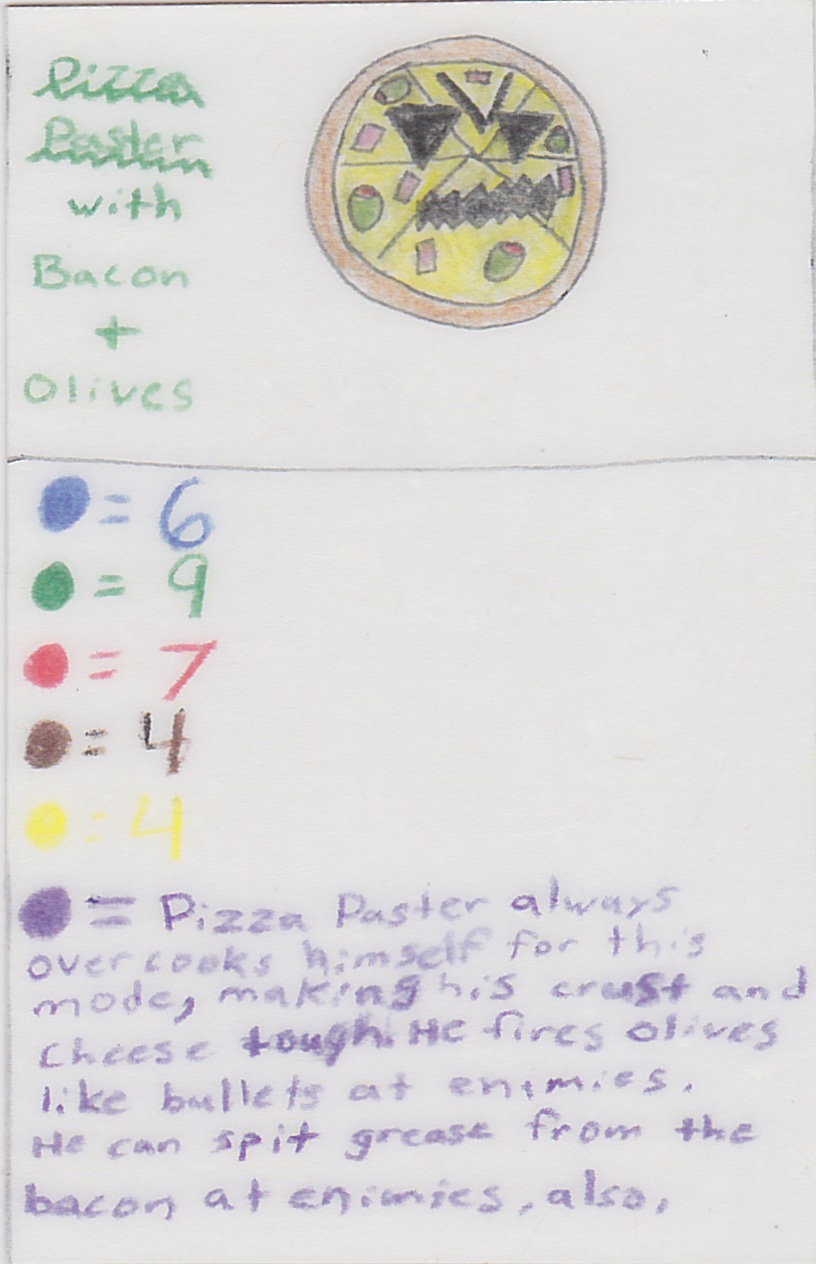 Pizza
Paster
with
Bacon
+
Olives
= 6
= 9
= 7
= 4
= 4
= Pizza Paster always
over cooks himself for this
mode, making his crust and
cheese tough. He fires olives
like bullets at enimies.
He can spit grease from the
bacon at enimies, also.